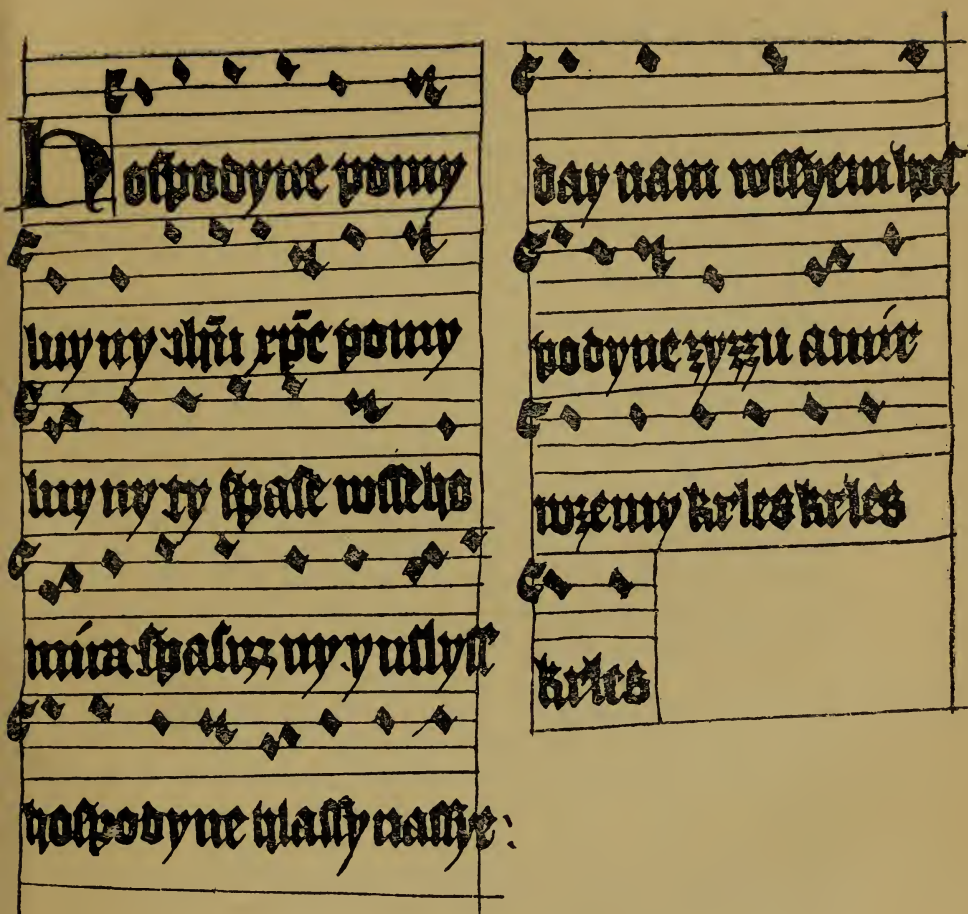 Hospodyne pomy
luy ny ihū xpē pomy
luy ny ty spase wsseho
míra spasizz ny y uslyss
hospodyne hlassy nassye :
day nam wssyem hos
podyne zyzzu a mír
wzemy krles krles
krles